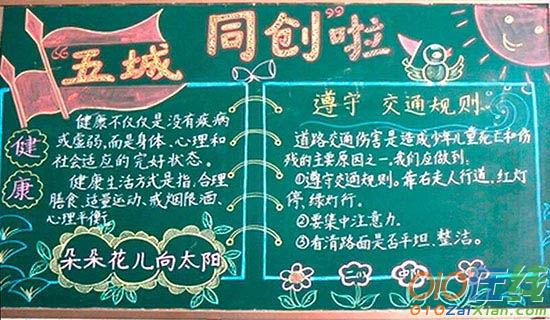 “五城同创”啦
健康
健康不仅仅是没有疾病
或虚弱,而是身体、心理和
社会适应的完好状态。
健康生活方式是指,合理
膳食、适量运动、戒烟限酒、
心理平衡。
朵朵花儿向太阳
遵守 交通规则。
道路交通伤害是造成少年儿童死亡和伤
残的主要原因之一。我们应做到:
①遵守交通规则。靠右走人行道,红灯
停,绿灯行。
②要集中注意力。
③看清路面是否平坦、整洁。
010在线
010zaixian.com